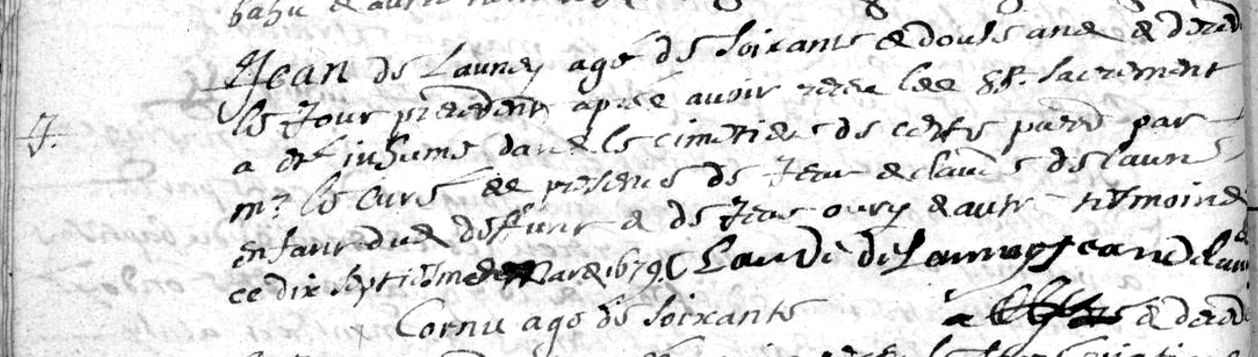 bahu & autre
Jean de Launay agé de soixante & douse ans & deced
le Jour precedent apres auoir receu les SS. sacrement
J. a esté inhumé dans le cimetiere de ceste par
mr. le Curé en presence de Jean & claude de laun
enfans dud deffunt & de Jean oury & autre tesmoins
ce dix septiesme de Mars 1679 Claude de Launay Jean delaun
Cornu agé de soixante & deced